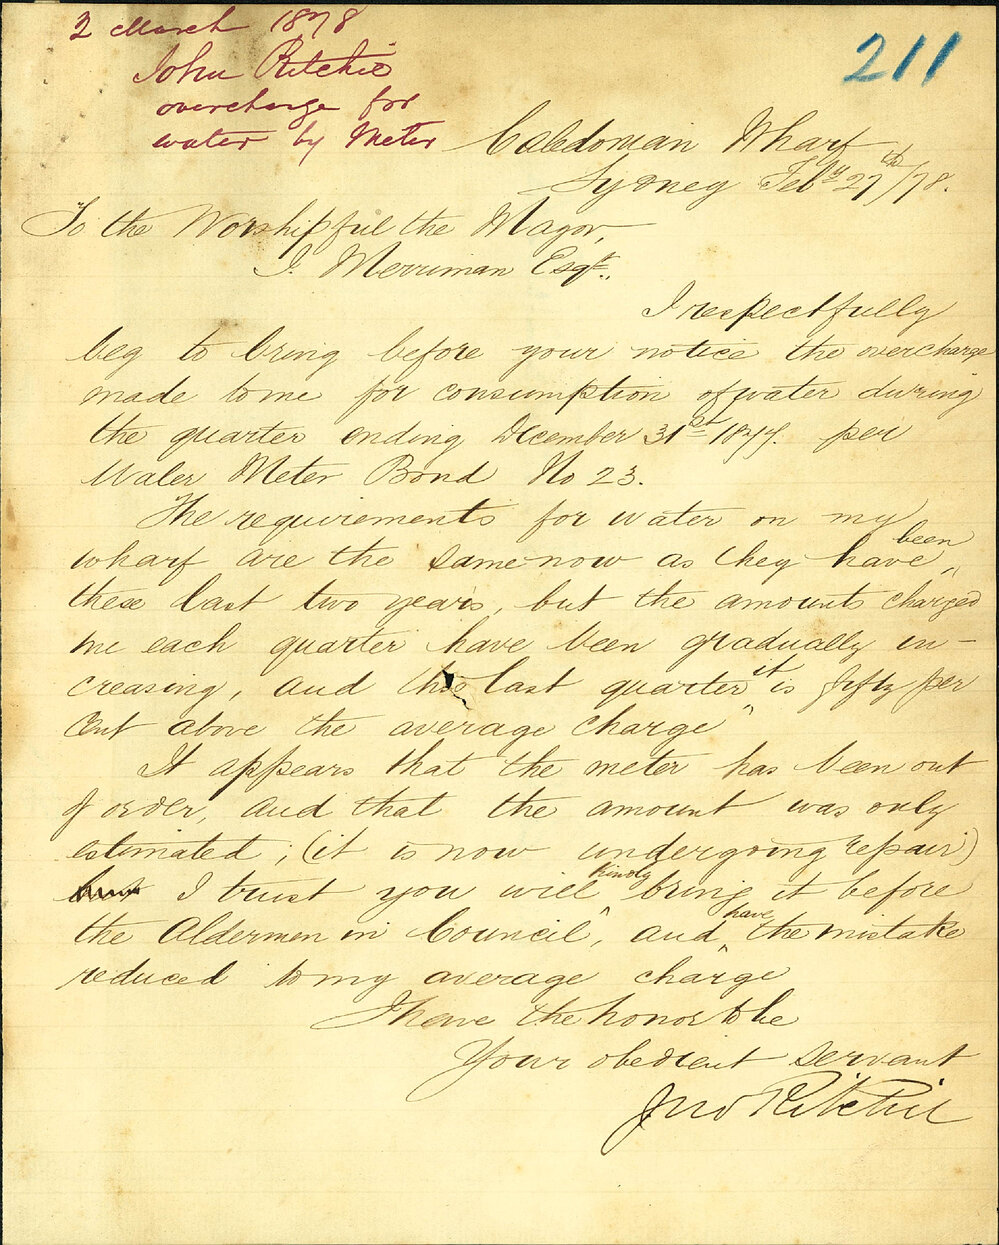 2 March 1878
John Ritchie
overcharge for
water by Meter
211
Caledonian Wharf
Sydney Feby 27th/78.
To the Worshipful the Mayor,
J. Merriman Esqr.,
I respectfully
beg to bring before your notice the overcharge
made to me for consumption of water during
the quarter ending December 31st 1877. per
Water Meter Bond No 23.
The requirements for water on my
wharf are the same now as they have been
these last two years, but the amounts charged
me each quarter have been gradually in-
creasing, and this last quarter it is fifty per
cent above the average charge
It appears that the meter has been out
of order, and that the amount was only
estimated; (it is now undergoing repair)
I trust you will kindly bring it before
the Aldermen in Council, and have the mistake
reduced to my average charge
I have the honor to be
Your obedient servant
Jno Ritchie